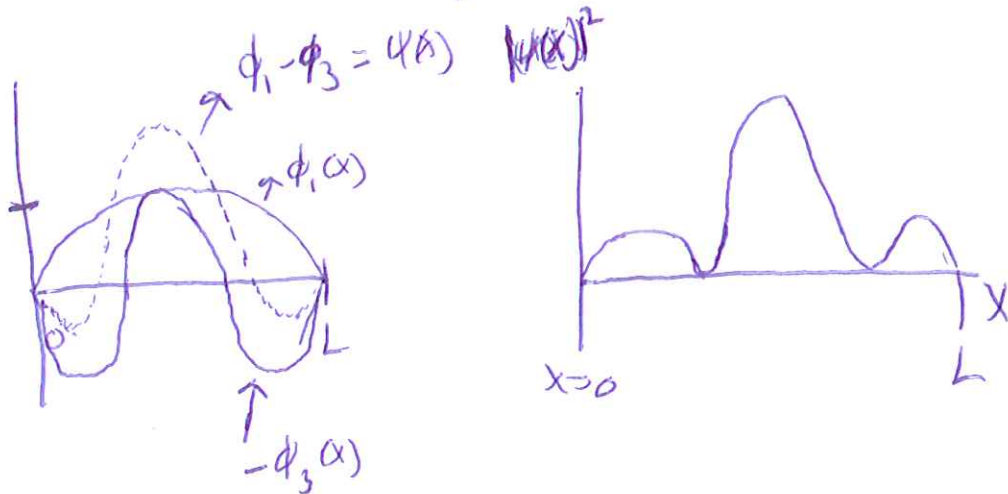 ϕ₁ - ϕ₃ = ψ(x)
|ψ(x)|²
ϕ₁(x)
0
L
-ϕ₃(x)
x=0
X
L